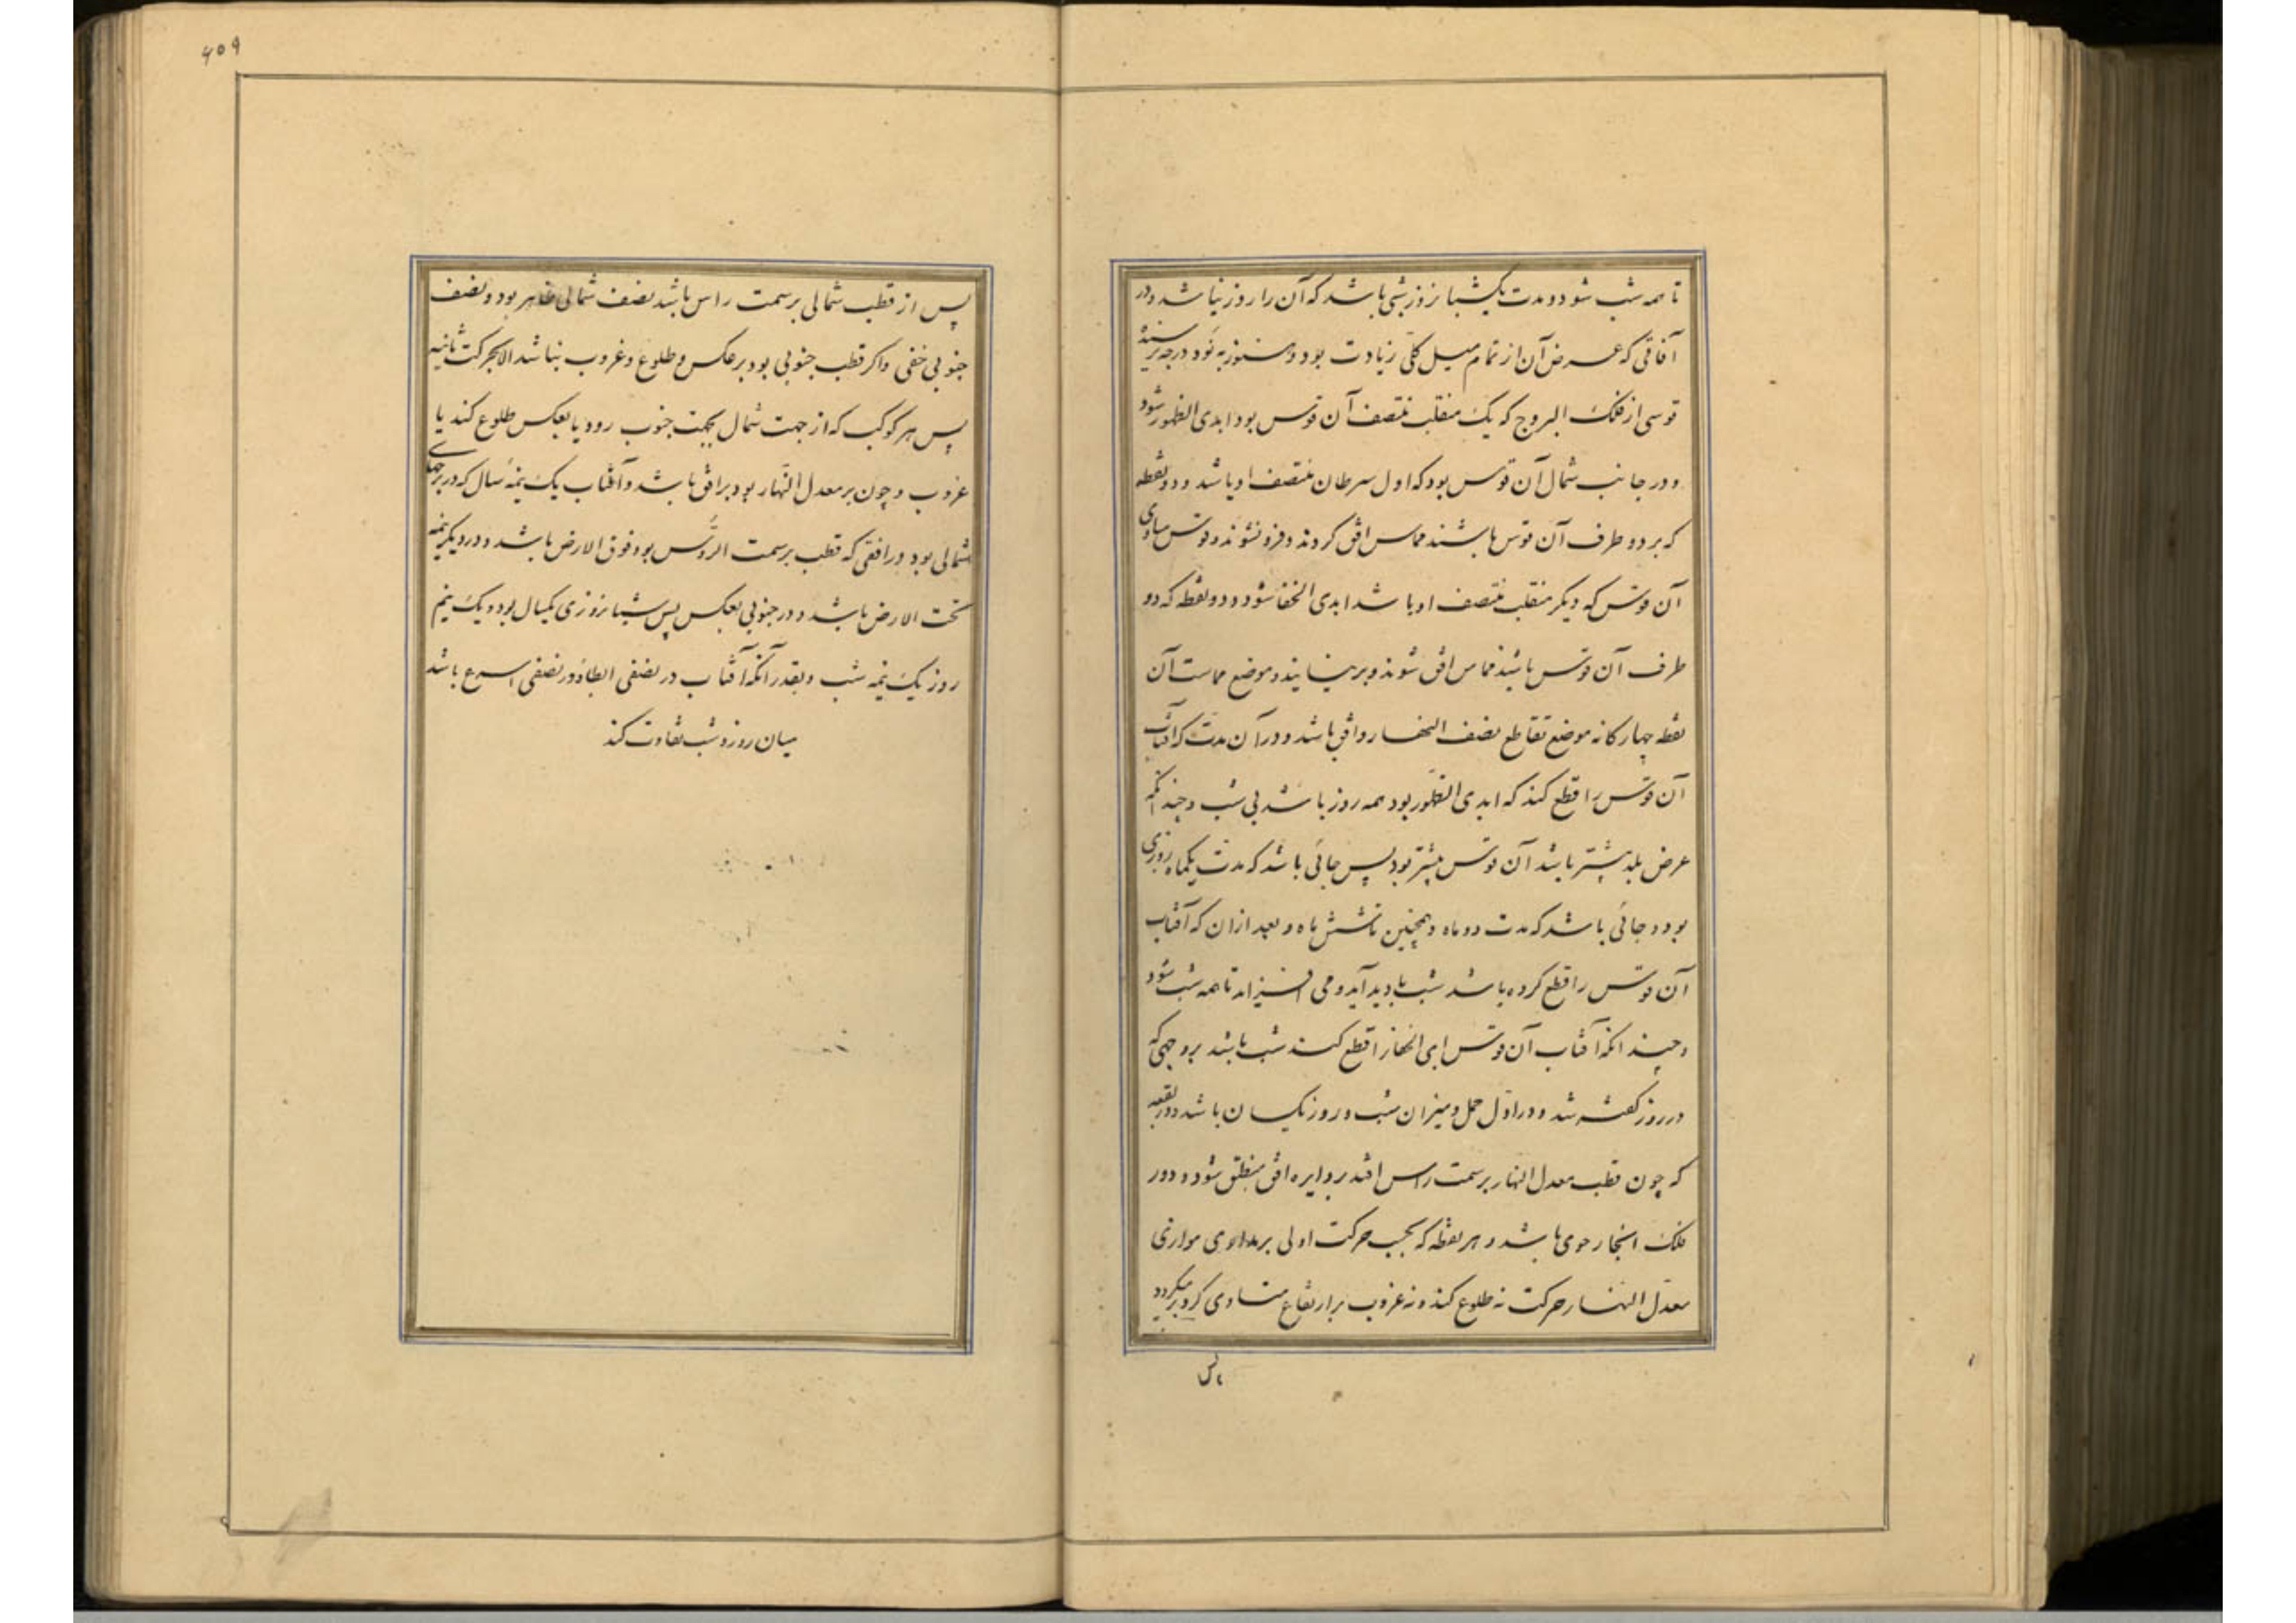 تا همه شب شود و مدت یکشبانروز شبی باشد که آن را روز نباشد و در
آفاقی که عرض آن از تمام میل کلی زیادت بود و هنوز به نود درجه نرسیده
قوسی از فلک البروج که یک منقلب منتصف آن قوس بود ابدی الظهور شود
و در جانب شمال آن قوس بود که اول سرطان منتصف او باشد و دو نقطه
که بر دو طرف آن قوس باشند مماس افق کردند و فرو نشوند و قوس مساوی
آن قوس که دیکر منقلب منتصف او باشد ابدی الخفا شود و دو نقطه که دو
طرف آن قوس باشند مماس افق شوند و بر نیایند و موضع مماست آن
نقطه چهارکانه موضع تقاطع نصف النهار و افق باشد و در آن مدت که آفتاب
آن قوس را قطع کند که ابدی الظهور بود همه روز باشد بی شب و چندانکه
عرض بلد بیشتر باشد آن قوس بیشتر بود پس جائی باشد که مدت یکماه روزی
بود و جائی باشد که مدت دو ماه و همچنین تا شش ماه و بعد از ان که آفتاب
آن قوس را قطع کرده باشد شب بادید آید و می افزاید تا همه شب شود
و چندانکه آفتاب آن قوس ابدی الخفا را قطع کند شب باشد بر وجهی که
در روز کفته شد و در اول حمل و میزان شب و روز یکسان باشد و در بقعه
که چون قطب معدل النهار بر سمت راس افتد بر دایره افق منطبق شود و دور
فلک آنجا رحوی باشد و هر نقطه که بحسب حرکت اولی بر مداری موازی
معدل النهار حرکت نه طلوع کند و نه غروب بر ارتفاع متساوی کرد بر میکردد
پس
۶۰۹
پس از قطب شمالی بر سمت راس باشد نصف شمالی ظاهر بود و نصف
جنوبی خفی و اکر قطب جنوبی بود بر عکس و طلوع و غروب نباشد الا بحرکت ثانیه
پس هر کوکب که از جهت شمال بجهت جنوب رود یا بعکس طلوع کند یا
غروب و چون بر معدل النهار بود بر افق باشد و آفتاب یک نیمه سال که در برجهای
شمالی بود در افقی که قطب بر سمت الرؤس بود فوق الارض باشد و در دیکر نیمه
تحت الارض باشد و در جنوبی بعکس پس شبانروزی یکسال بود و یک نیم
روز یک نیمه شب و بقدر آنکه آفتاب در نصفی ابطا و در نصفی اسرع باشد
میان روز و شب تفاوت کند